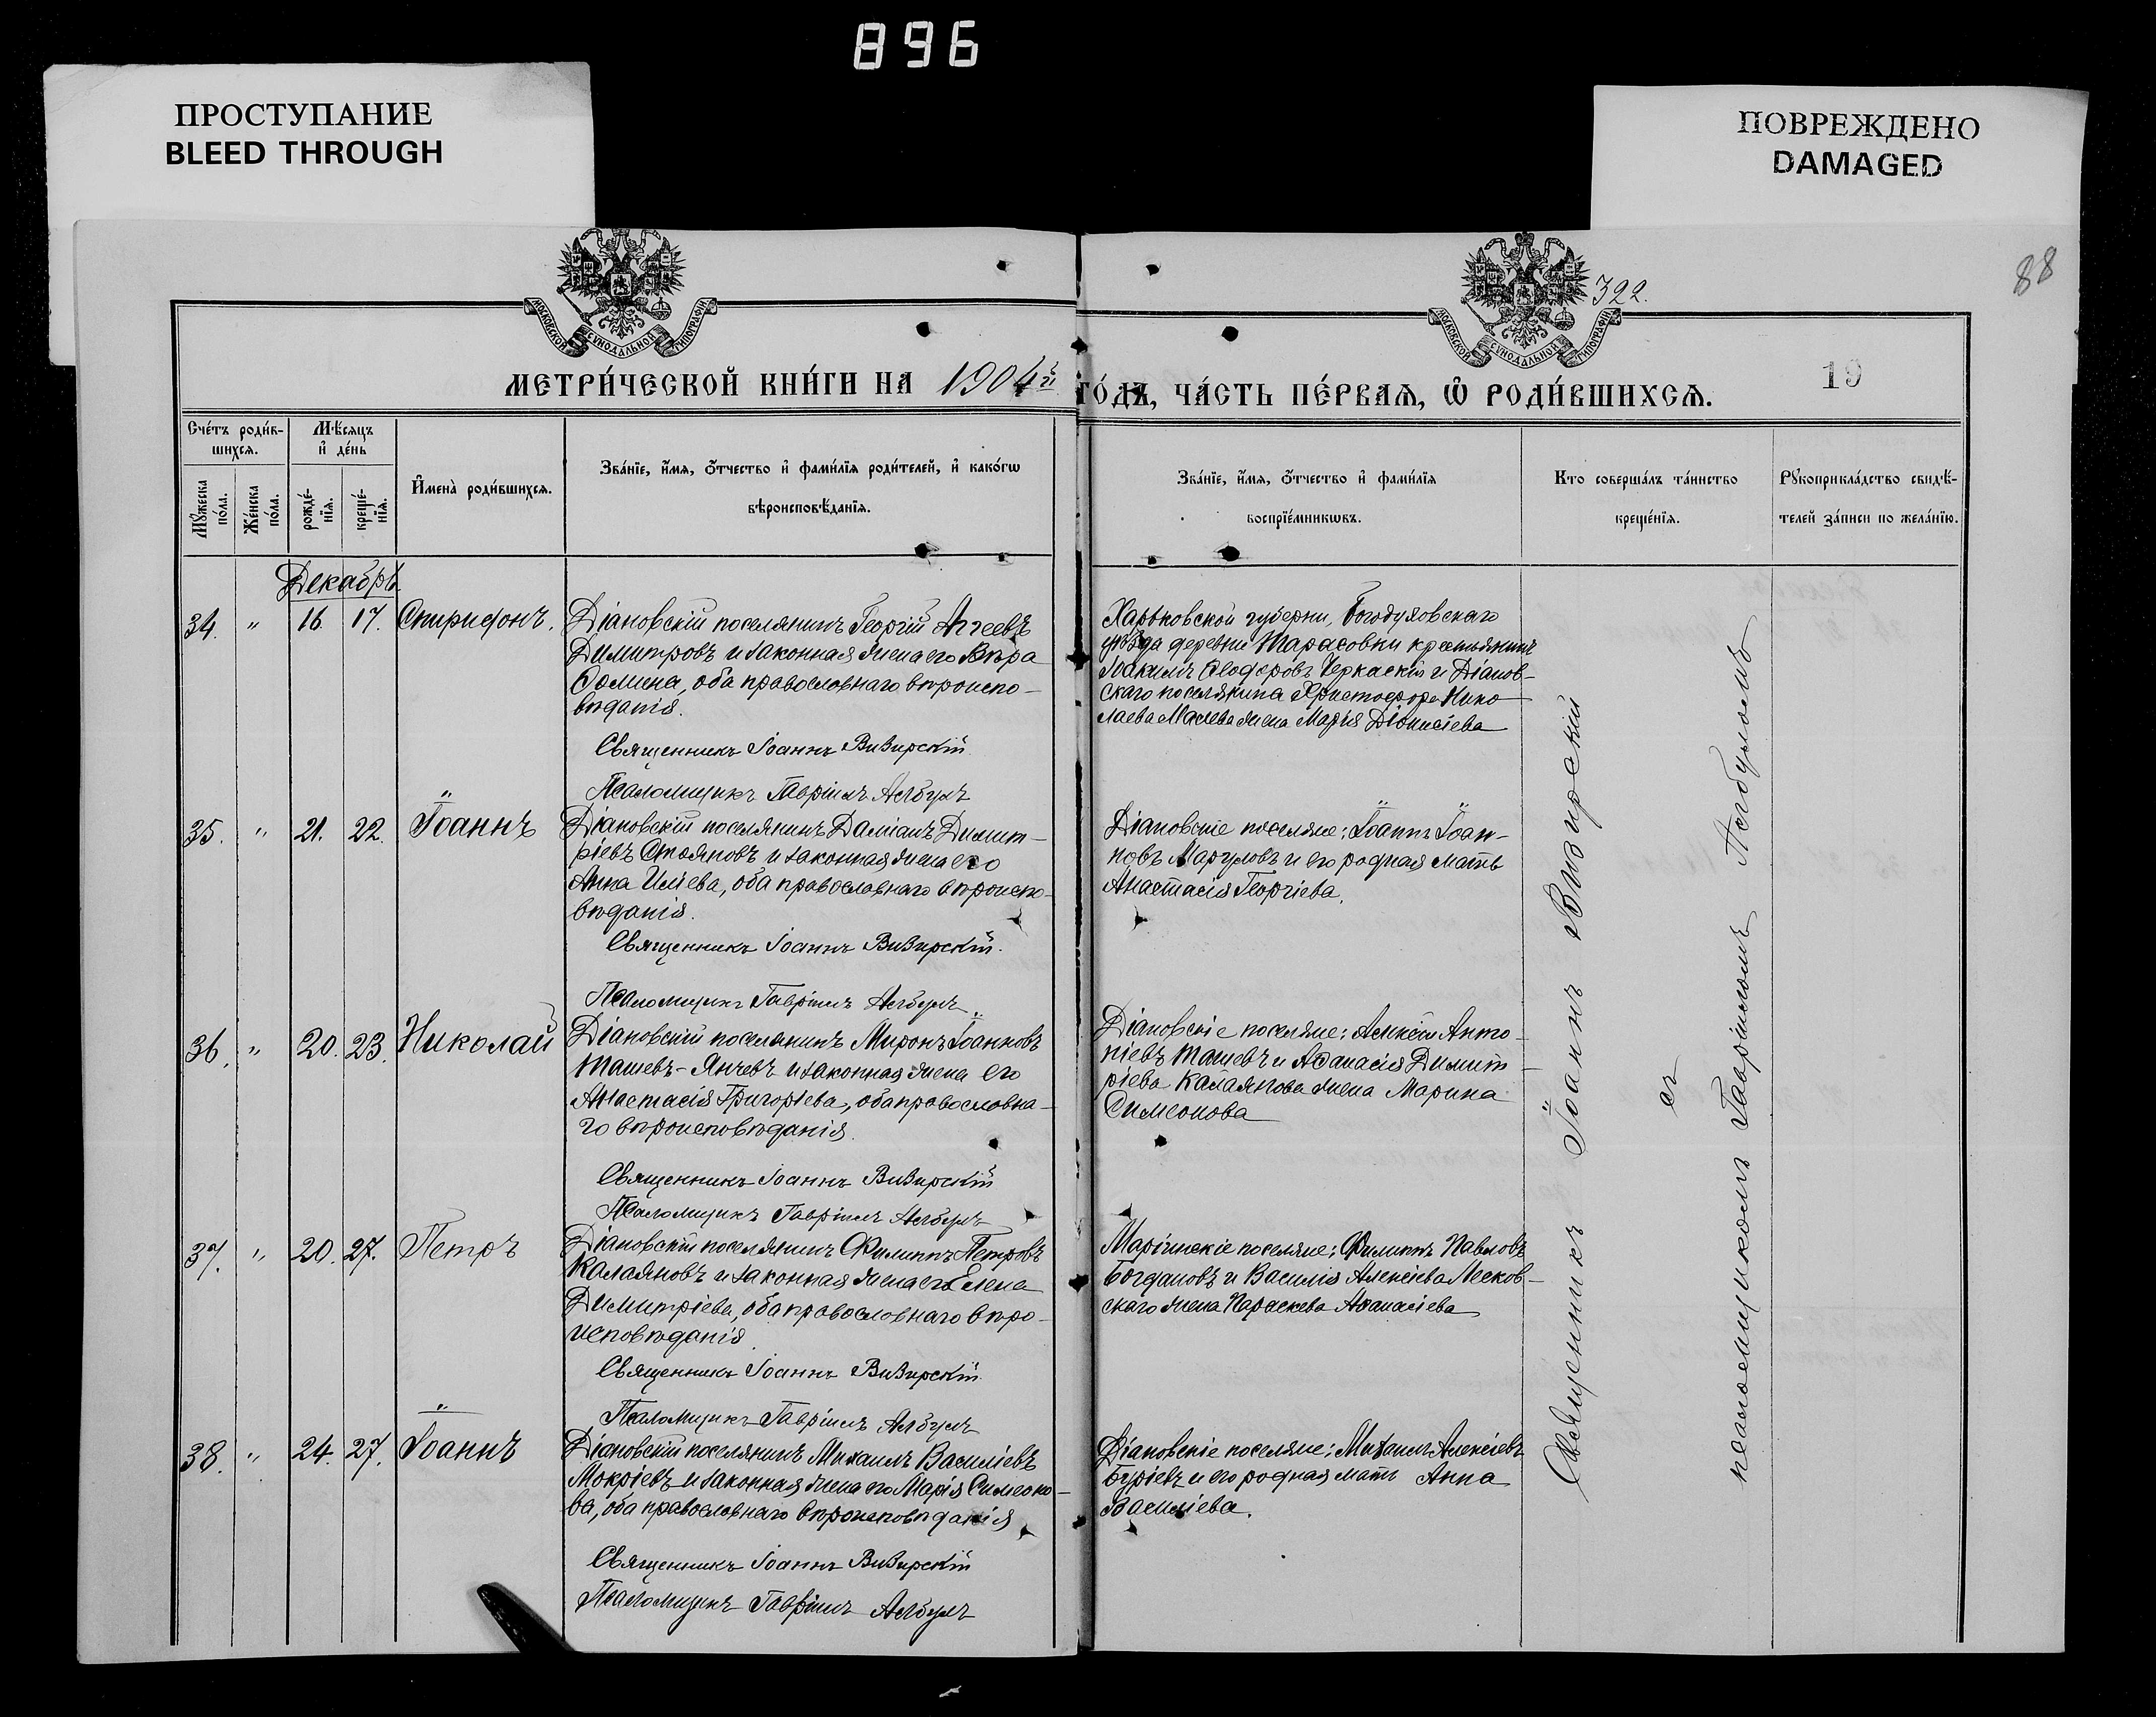 896
ПРОСТУПАНИЕ
BLEED THROUGH
ПОВРЕЖДЕНО
DAMAGED
88
322.
МОСКОВСКОЙ СУНОДАЛЬНОЙ ТИПОГРАФІИ
МОСКОВСКОЙ СУНОДАЛЬНОЙ ТИПОГРАФІИ
МЕТРИ́ЧЕСКОЙ КНИ́ГИ НА 1904й
ГО́ДЪ, ЧА́СТЬ ПЕ́РВАѦ, Ѡ҆ РОДИ́ВШИХСѦ.
19
Сче́тъ роди́в-
шихсѧ.
Мѣ́сяцъ
и҆ де́нь
И҆мена̀ роди́вшихсѧ.
Зва́нїе, и҆́мѧ, ѻ҆́тчество и҆ фами́лїѧ роди́телей, и҆ како́гѡ
вѣроисповѣ́данїѧ.
Мꙋ́жеска
по́ла.
Же́нска
по́ла.
рожде́-
нїѧ.
креще́-
нїѧ.
Зва́нїе, и҆́мѧ, ѻ҆́тчество и҆ фами́лїѧ
воспрїе́мникѡвъ.
Кто соверша́лъ та́инство
креще́нїѧ.
Рꙋкоприкла́дство свидѣ́-
телей за́писи по жела́нїю.
Декабрь
34. " 16. 17. Спиридонъ.
Діановскій поселянинъ Георгій Агеевъ
Димитровъ и законная жена его Вѣра
Ѳомина, оба православнаго вѣроиспо-
вѣданія.
Священникъ Іоаннъ Визирскій
Псаломщикъ Гавріилъ
Харьковской губерніи, Богодуховскаго
уѣзда деревни Тарасовки крестьянинъ
Іоакимъ Ѳеодоровъ Черкаскій и Діанов-
скаго поселянина Христофора Нико
лаева жена Марія Діонисіева
35. " 21. 22. Іоаннъ
Діановскій поселянинъ Даміанъ Димит-
ріевъ Стояновъ и законная жена его
Анна Иліева, оба православнаго вѣроиспо-
вѣданія.
Священникъ Іоаннъ Визирскій.
Псаломщикъ Гавріилъ
Діановскіе поселяне: Іоаннъ Іоан-
новъ Маруловъ и его родная мать
Анастасія Георгіева.
36. " 20. 23. Николай
Діановскій поселянинъ Миронъ Іоанновъ
Ташевъ-Янчевъ и законная жена его
Анастасія Григорьева, оба православна-
го вѣроисповѣданія.
Священникъ Іоаннъ Визирскій
Псаломщикъ Гавріилъ
Діановскіе поселяне: Алексѣй Анто-
ніевъ Ташевъ и Аѳанасія Димит-
ріева Калаянова жена Марина
Симеонова
37. " 20. 27. Петръ
Діановскій поселянинъ Филиппъ Петровъ
Калаяновъ и законная жена его Елена
Димитріева, оба православнаго вѣро-
исповѣданія
Священникъ Іоаннъ Визирскій
Псаломщикъ Гавріилъ
Маріинскіе поселяне: Филиппъ Павловъ
Богдановъ и Василія Алексіева Лесков-
скаго жена Параскева Аѳанасіева
38. " 24. 27. Іоаннъ
Діановскій поселянинъ Михаилъ Василіевъ
Мокріевъ и законная жена его Марія Симеоно-
ва, оба православнаго вѣроисповѣданія
Священникъ Іоаннъ Визирскій
Псаломщикъ Гавріилъ
Діановскіе поселяне: Михаилъ Алексіевъ
Буріевъ и его родная мать Анна
Василіева.
Священникъ Іоаннъ Визирскій
съ
псаломщикомъ Гавріиломъ